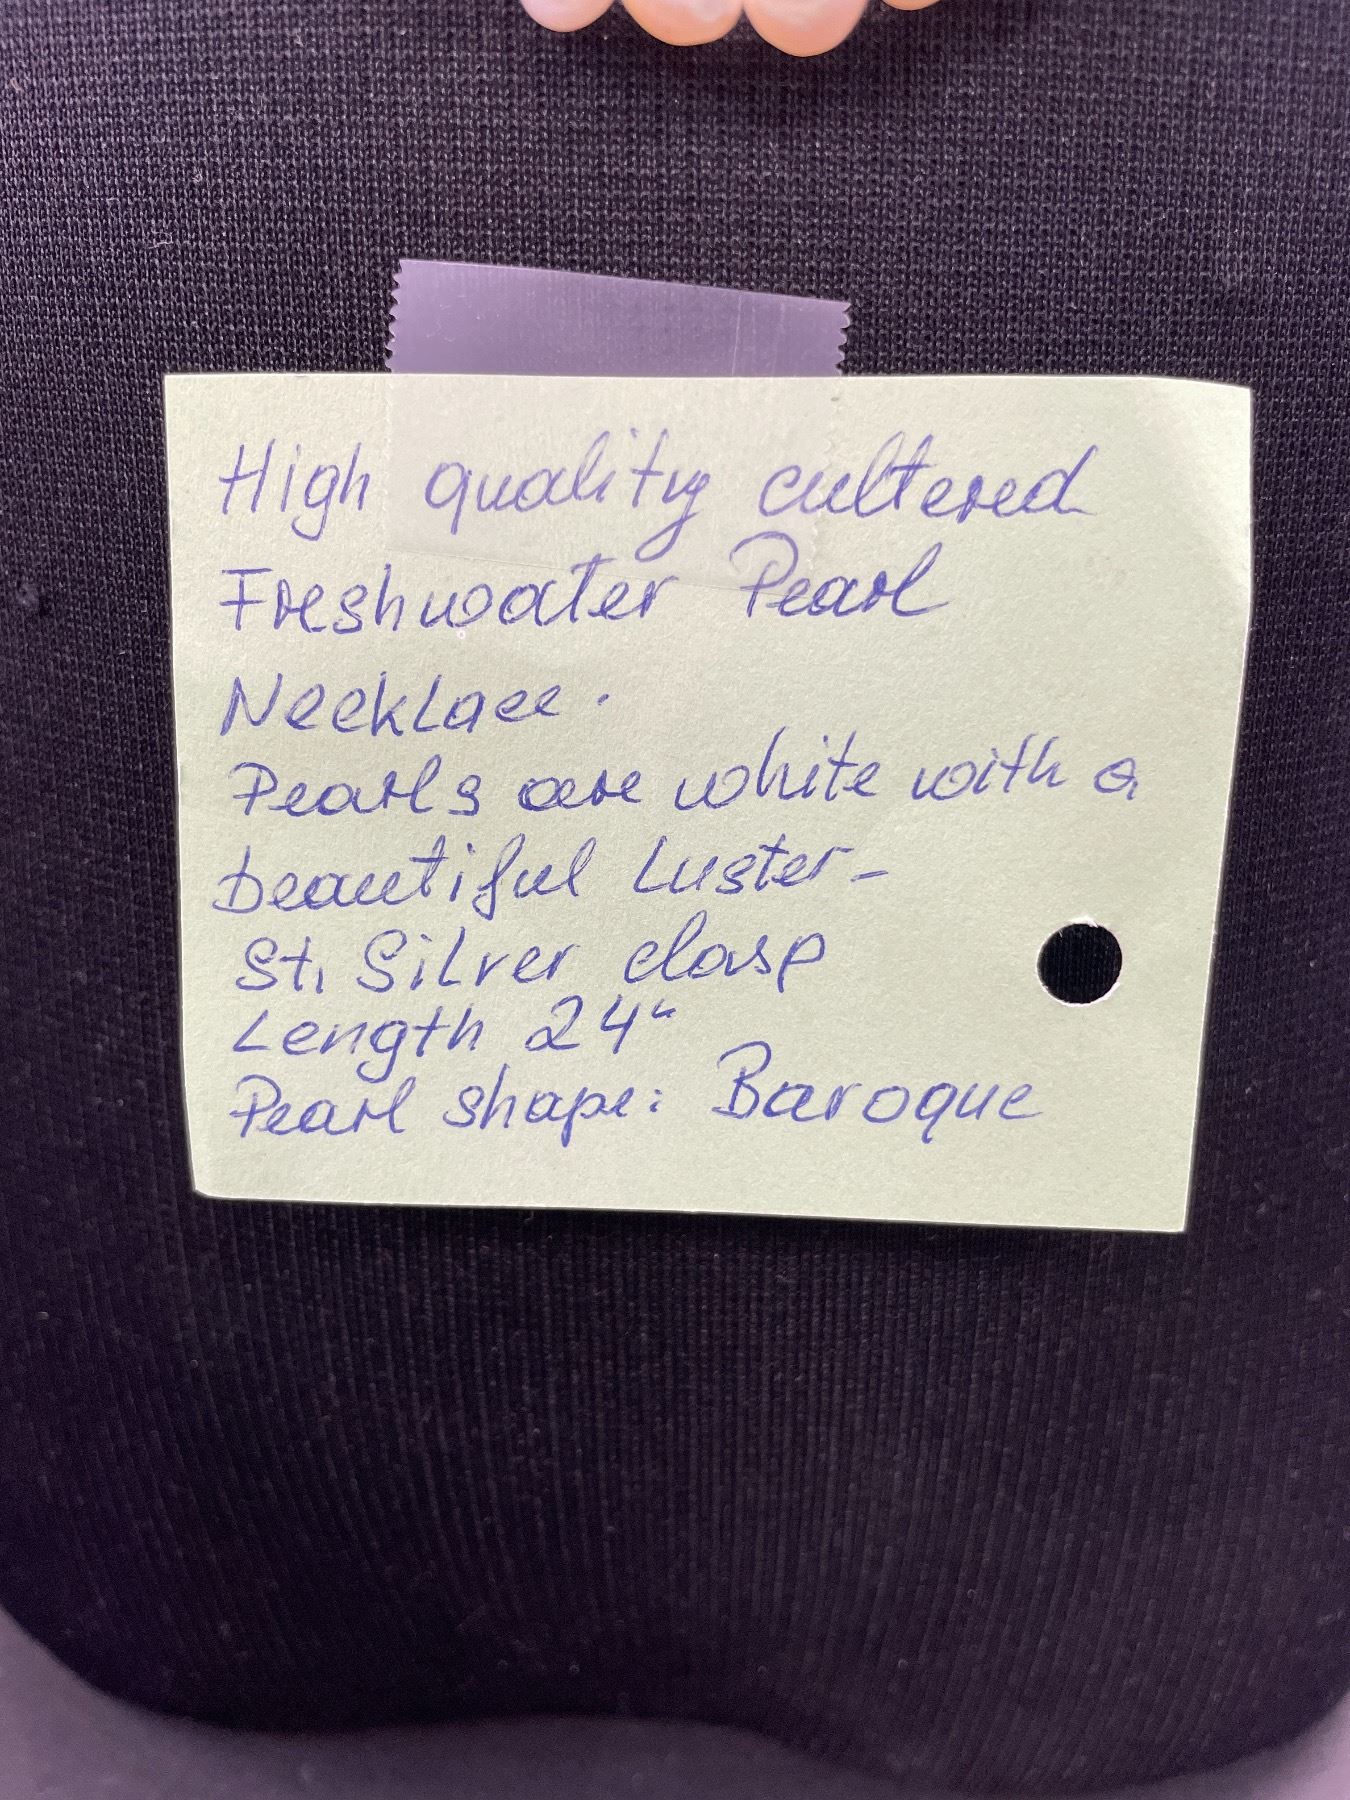 High quality cultered
Freshwater Pearl
Necklace.
Pearls are white with a
beautiful Luster-
St. Silver clasp
Length 24"
Pearl shape: Baroque